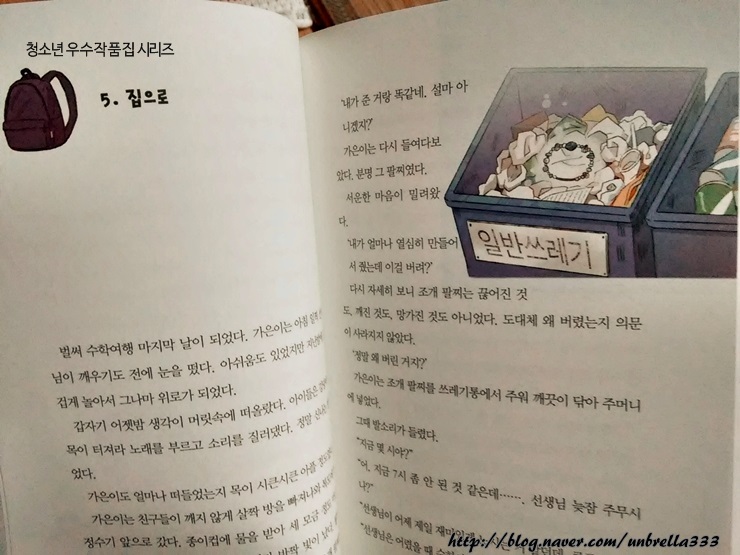 청소년 우수작품집 시리즈
5. 집으로
벌써 수학여행 마지막 날이 되었다. 가은이는 아침 일찍
님이 깨우기도 전에 눈을 떴다. 아쉬움도 있었지만
겁게 놀아서 그나마 위로가 되었다.
갑자기 어젯밤 생각이 머릿속에 떠올랐다. 아이들은
목이 터져라 노래를 부르고 소리를 질러댔다. 정말
었다.
가은이도 얼마나 떠들었는지 목이 시큰시큰 아플
가은이는 친구들이 깨지 않게 살짝 방을 빠져나와
정수기 앞으로 갔다. 종이컵에 물을 받아 세 모금
반짝 빛이 났다.
'내가 준 거랑 똑같네. 설마 아
니겠지?'
가은이는 다시 들여다보
았다. 분명 그 팔찌였다.
서운한 마음이 밀려왔
다.
'내가 얼마나 열심히 만들어
서 줬는데 이걸 버려?'
다시 자세히 보니 조개 팔찌는 끊어진 것
도, 깨진 것도, 망가진 것도 아니었다. 도대체 왜 버렸는지 의문
이 사라지지 않았다.
'정말 왜 버린 거지?'
가은이는 조개 팔찌를 쓰레기통에서 주워 깨끗이 닦아 주머니
에 넣었다.
그때 발소리가 들렸다.
"지금 몇 시야?"
"어, 지금 7시 좀 안 된 것 같은데……. 선생님 늦잠 주무시
나?"
"선생님이 어제 제일 재미있게
"선생님은 어렸을 때 수학
일반쓰레기
http://blog.naver.com/unbrella333